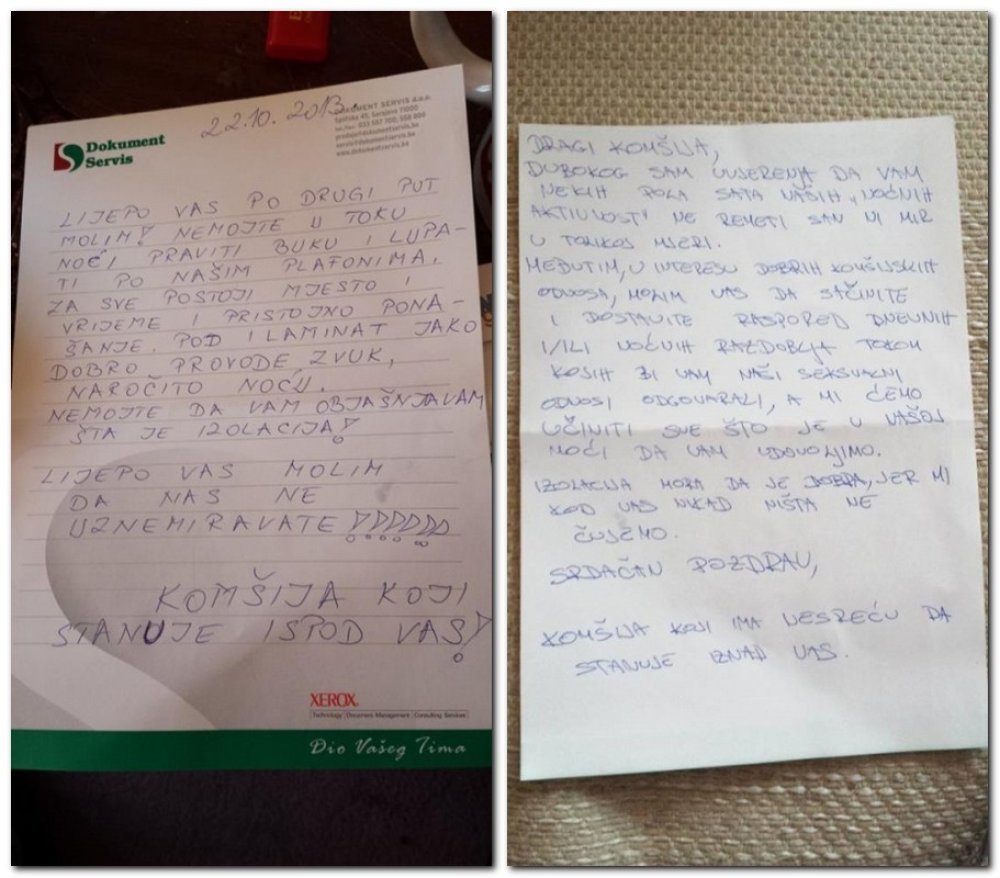 22.10.2013.
Dokument
Servis
DOKUMENT SERVIS d.o.o.
Splitska 45, Sarajevo 71000
www.dokumentservis.ba
LIJEPO VAS PO DRUGI PUT
MOLIM! NEMOJTE U TOKU
NOĆI PRAVITI BUKU I LUPA-
TI PO NAŠIM PLAFONIMA.
ZA SVE POSTOJI MJESTO I
VRIJEME I PRISTOJNO PONA-
ŠANJE. POD I LAMINAT JAKO
DOBRO PROVODE ZVUK,
NAROČITO NOĆU.
NEMOJTE DA VAM OBJAŠNJAVAM
ŠTA JE IZOLACIJA!
LIJEPO VAS MOLIM
DA NAS NE
UZNEMIRAVATE!!!!!!
KOMŠIJA KOJI
STANUJE ISPOD VAS!
XEROX
Technology Document Management Consulting Services
Dio Vašeg Tima
DRAGI KOMŠIJA,
DUBOKOG SAM UVJERENJA DA VAM
NEKIH POLA SATA NAŠIH „NOĆNIH
AKTIVNOSTI" NE REMETI SAN NI MIR
U TOLIKOJ MJERI.
MEĐUTIM, U INTERESU DOBRIH KOMŠIJSKIH
ODNOSA, MOLIM VAS DA SAČINITE
I DOSTAVITE RASPORED DNEVNIH
I/ILI NOĆNIH RAZDOBLJA TOKOM
KOJIH BI VAM NAŠI SEKSUALNI
ODNOSI ODGOVARALI, A MI ĆEMO
UČINITI SVE ŠTO JE U VAŠOJ
MOĆI DA VAM UDOVOLJIMO.
IZOLACIJA MORA DA JE DOBRA, JER MI
KOD VAS NIKAD NIŠTA NE
ČUJEMO.
SRDAČAN POZDRAV,
KOMŠIJA KOJI IMA NESREĆU DA
STANUJE IZNAD VAS.